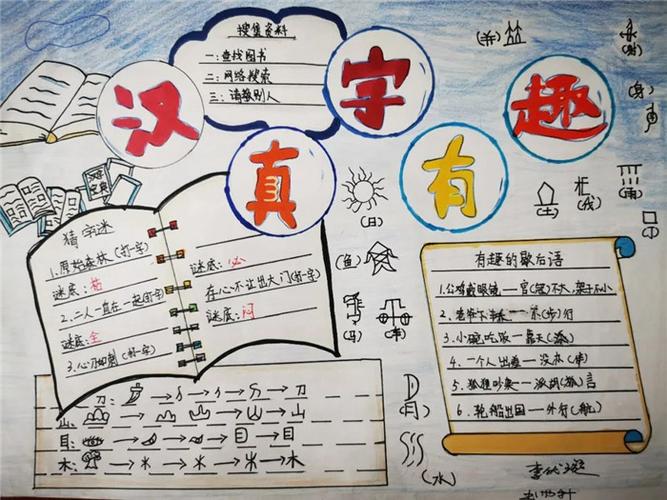 汉字真有趣
搜集资料
一:查找图书
二:网络搜索
三:请教别人
猜字迷
1.原始森林(打一字)
谜底:枯
2.二人一直在一起(打一字)
谜底:全
3.心乃如刺(打一字)
谜底:必
存心不让出大门(打一字)
谜底:闷
刀:
刀
山:
山
目:
目
木:
木
(日)
(鱼)
(车)
(月)
(水)
(土)
(戍)
(雨)
(身)
有趣的歇后语
1.公鸡戴眼镜一官(冠)不大,架子不小
3.小碗吃饭一靠天(添)
4.一个人出差一没办(伴)
5.狐狸吵架一派胡(狐)言
6.轮船出国一外行(航)